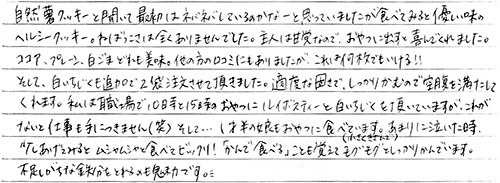 自然薯クッキーと聞いて最初はネバネバしているのかなーと思っていましたが食べてみると優しい味の
ヘルシークッキー。ねばっこさは全くありませんでした。主人は甘党なので、おやつに出すと喜んでくれました。
ココア、プレーン、白ごまどれも美味。他の方の口コミにもありましたが、これは何枚でもいける!!
そして、白いちじくも追加で2袋注文させて頂きました。適度な固さで、しっかりかむので空腹を満たして
くれます。私は職場で10時と15時のおやつにルイボスティーと白いちじくを頂いていますが、これが
ないと仕事も手につきません(笑) そして…1才半の娘もおやつに食べています。あまりに泣いた時、
(小さくきざんで)
1ケあげてみるとムシャムシャと食べてビックリ!「かんで食べる」ことも覚えてモグモグとしっかりかんでいます。
不足しがちな鉄分をとれるのも魅力です。